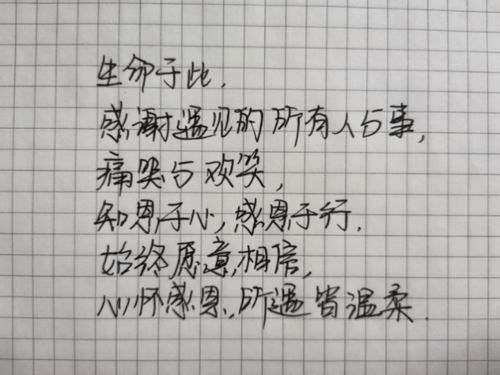 生命于此，
感谢遇见的所有人与事，
痛哭与欢笑，
知恩于心，感恩于行。
始终愿意相信，
心怀感恩，所遇皆温柔。